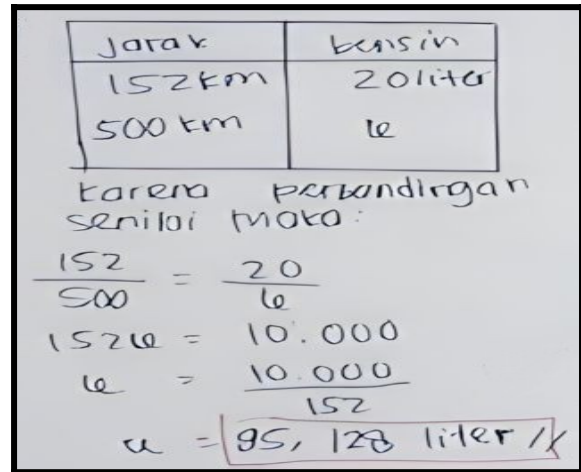 Jarak bensin
152 km 20 liter
500 km
karena perbandingan
senilai maka:
152 = 20
500
152 = 10.000
= 10.000
152
= 95, 128 liter